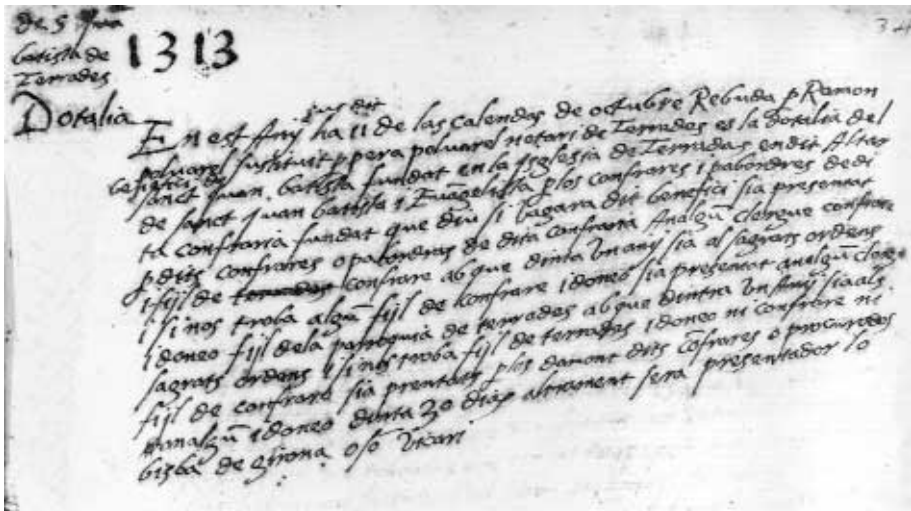 de S Juan
batista de
Terrades
1313
34
Dotalia
jus dit
En est Any ha 11 de las calendas de octubre Rebuda p Ramon
poluarel sustituit p pera poluarel notari de Terrades es la dotalia del
benefici de
sanct Juan batista fundat en la Isglesia de Terradas en dit Altar
de sanct Juan batista i Evāgelista p los confrares i pabordres de di
ta confraria fundat que diu si vagara dit benefici sia presentat
p dits confrares o pabordres de dita confraria Analgū clergue confrare
i fijl de terrades confrare ab que dintra un anij sia al sagrats ordens
i si nos troba algū fijl de confrare idoneo sia presentat analgū clergue
idoneo fijl dela parroquia de terrades ab que dintra un Anij sia als
sagrats ordens i si nos troba fijl de terrades idoneo ni confrare ni
fijl de confrare sia prentats p los damont dits cōfrares o procuradós
analgū idoneo dinta 30 dias altrament sera presentador lo
bisba de girona o só vicari